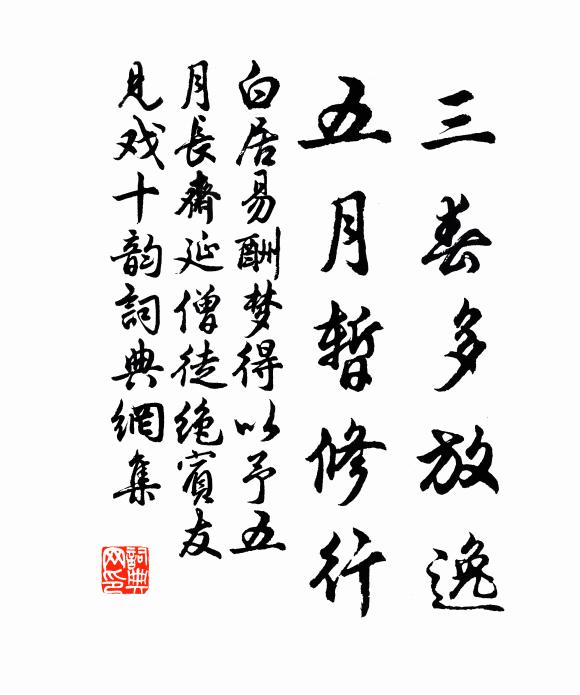 三春多放逸
五月暫修行
白居易酬梦得以予五
月長齋延僧徒绝賓友
見戏十韵詞典網集
詞典网印